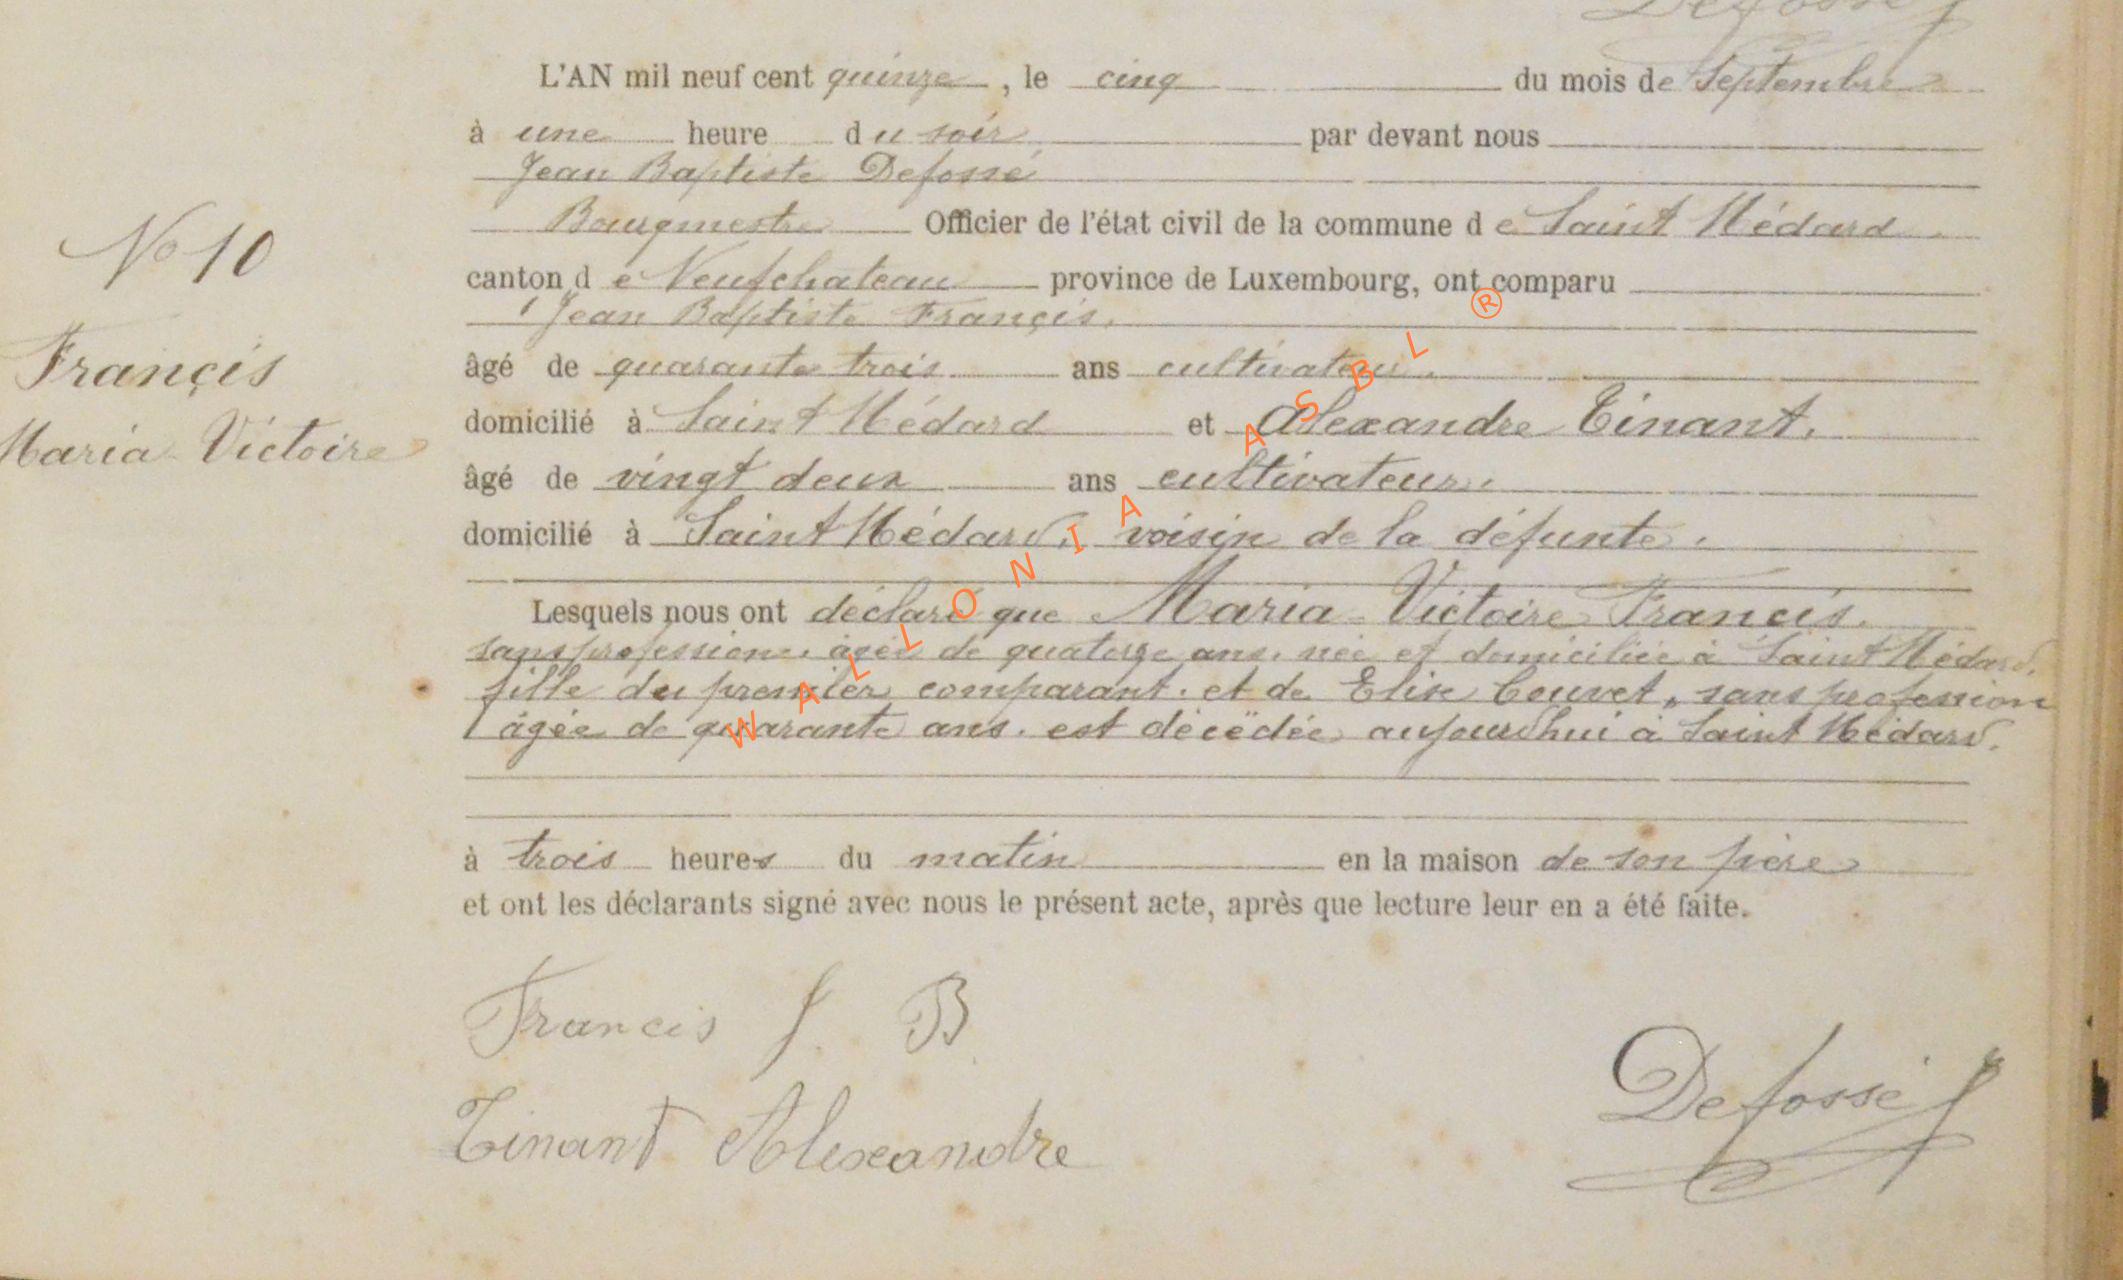 Defossé
L'AN mil neuf cent quinze, le cinq du mois de Septembre
à une heure du soir par devant nous
Jean Baptiste Defossé
Bourgmestre Officier de l'état civil de la commune de Saint Médard
canton de Neufchateau province de Luxembourg, ont comparu
Jean Baptiste Françis.
âgé de quarante trois ans cultivateur.
domicilié à Saint Médard et Alexandre Tinant.
âgé de vingt deux ans cultivateur.
domicilié à Saint Médard, voisin de la défunte.
Lesquels nous ont déclaré que Maria-Victoire Francis.
sans profession, âgée de quatorze ans, née et domiciliée à Saint Médard,
fille du premier comparant et de Elise Couvet, sans profession
âgée de quarante ans. est décédée aujourd'hui à Saint Médard.
à trois heures du matin en la maison de son père
et ont les déclarants signé avec nous le présent acte, après que lecture leur en a été faite.
No 10
Françis
Maria Victoire
Francis J. B
Tinant Alexandre
Defossé
WALLONIA ASBL ®